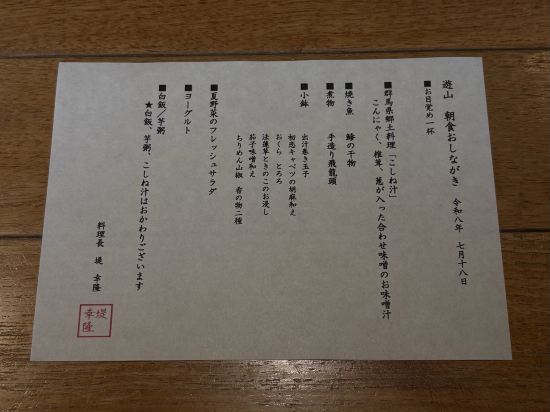 遊山　朝食おしながき　令和八年　七月十八日
■お目覚め一杯
■群馬県郷土料理「こしね汁」
こんにゃく、椎茸、葱が入った合わせ味噌のお味噌汁
■焼き魚　鰺の干物
■煮物　手造り飛龍頭
■小鉢　出汁巻き玉子
初恋キャベツの胡麻和え
おくら　とろろ
法蓮草ときのこのお浸し
茄子味噌和え
ちりめん山椒　香の物二種
■夏野菜のフレッシュサラダ
■ヨーグルト
■白飯／芋粥
★白飯、芋粥、こしね汁はおかわりございます
料理長　堤　幸隆
堤
幸隆